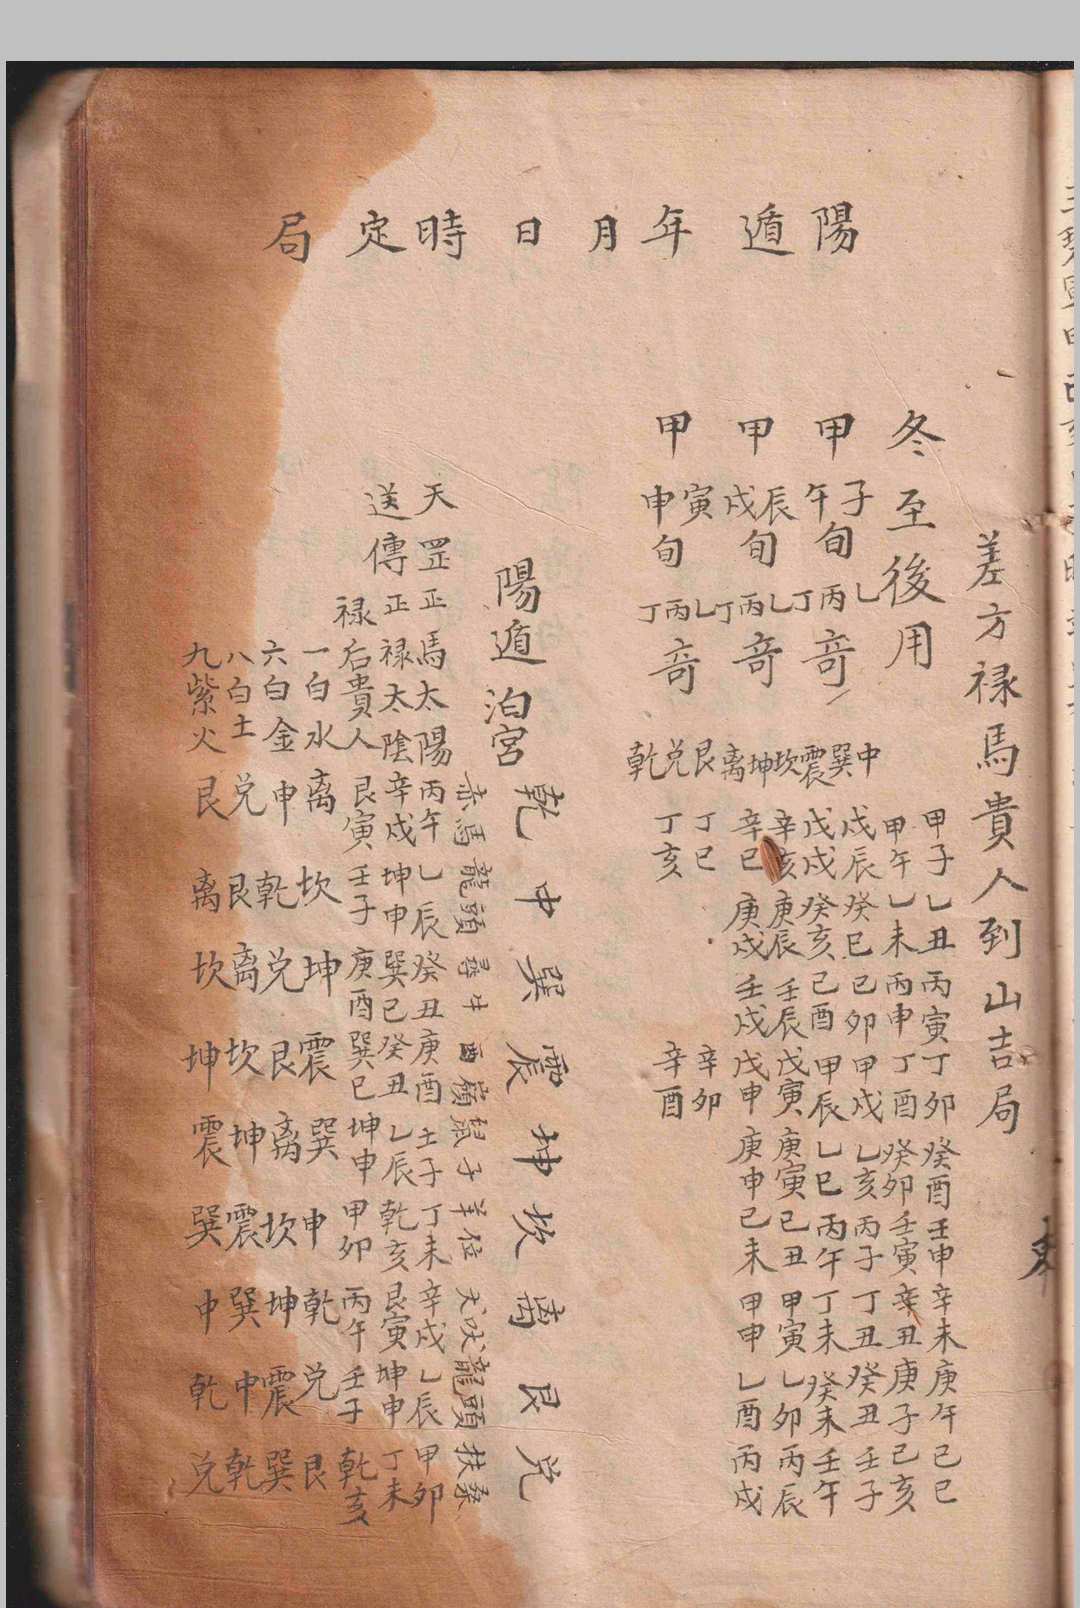 陽遁年月日時定局
差方禄馬貴人到山吉局
冬至後用
甲子午旬乙丙丁奇 中巽震
甲辰戌旬乙丙丁奇 坎坤离
甲寅申旬乙丙丁奇 艮兑乾
甲子乙丑丙寅丁卯癸酉壬申辛未庚午己巳
甲午乙未丙申丁酉癸卯壬寅辛丑庚子己亥
戊辰癸巳己卯甲戌乙亥丙子丁丑癸丑壬子
戊戌癸亥己酉甲辰乙巳丙午丁未癸未壬午
辛亥庚辰壬辰戊寅庚寅己丑甲寅乙卯丙辰
辛巳庚戌壬戌戊申庚申己未甲申乙酉丙戌
丁巳 辛卯
丁亥 辛酉
陽遁泊宮 乾中巽震坤坎离艮兑
赤馬 龍頭 尋牛 酉嶺 鼠子 羊位 犬吠 龍頭 扶桑
天罡正馬太陽 丙午 乙辰 癸丑 庚酉 壬子 丁未 辛戌 乙辰 甲卯
送傳正禄太陰 辛戌 坤申 巽巳 癸丑 乙辰 乾亥 艮寅 坤申 丁未
禄后貴人 艮寅 壬子 庚酉 巽巳 坤申 甲卯 丙午 壬子 乾亥
一白水 离坎坤震巽中乾兑艮
六白金 中乾兑艮离坎坤震巽
八白土 兑艮离坎坤震巽中乾
九紫火 艮离坎坤震巽中乾兑